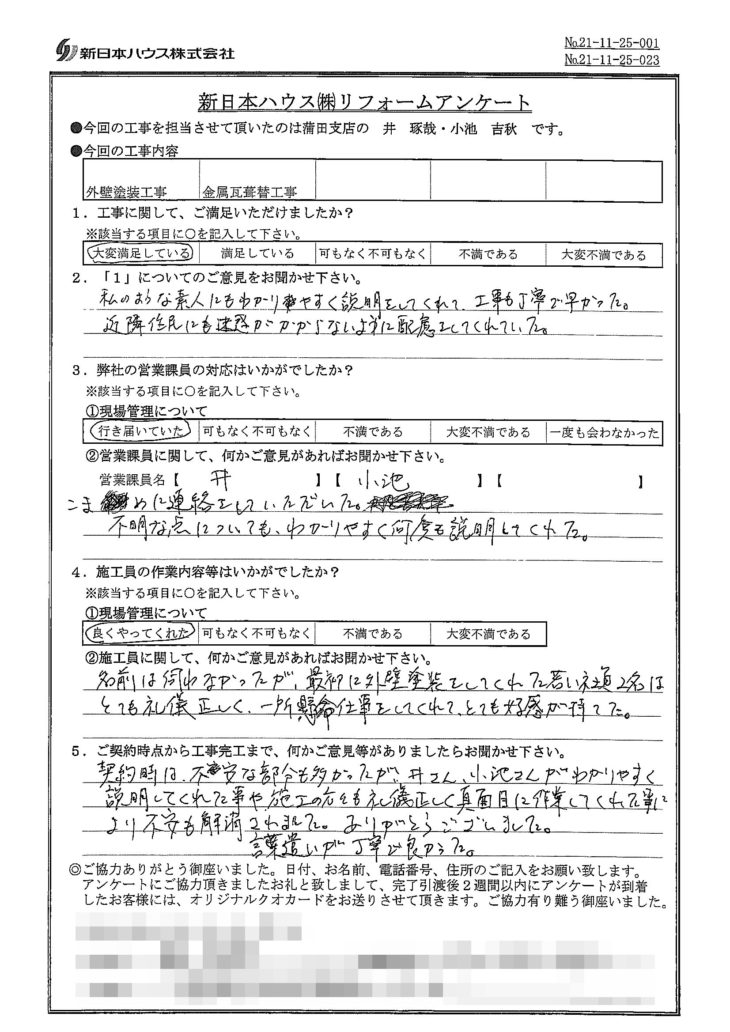 新日本ハウス株式会社
No.21-11-25-001
No.21-11-25-023
新日本ハウス㈱リフォームアンケート
●今回の工事を担当させて頂いたのは蒲田支店の 井 琢哉・小池 吉秋 です。
●今回の工事内容
外壁塗装工事 金属瓦葺替工事
1．工事に関して、ご満足いただけましたか？
※該当する項目に○を記入して下さい。
大変満足している 満足している 可もなく不可もなく 不満である 大変不満である
2．「1」についてのご意見をお聞かせ下さい。
私のような素人にもわかりやすく説明をしてくれて、工事も丁寧で早かった。
近隣住民にも迷惑がかからないように配慮をしてくれていた。
3．弊社の営業課員の対応はいかがでしたか？
※該当する項目に○を記入して下さい。
①現場管理について
行き届いていた 可もなく不可もなく 不満である 大変不満である 一度も会わなかった
②営業課員に関して、何かご意見があればお聞かせ下さい。
営業課員名【 井 】【 小池 】【 】
こまめに連絡をしていただいた。
不明な点についても、わかりやすく何度も説明してくれた。
4．施工員の作業内容等はいかがでしたか？
※該当する項目に○を記入して下さい。
①現場管理について
良くやってくれた 可もなく不可もなく 不満である 大変不満である
②施工員に関して、何かご意見があればお聞かせ下さい。
名前は伺わなかったが、最初に外壁塗装をしてくれた若い 2名は
とても礼儀正しく、一所懸命仕事をしてくれて、とても好感が持てた。
5．ご契約時点から工事完工まで、何かご意見等がありましたらお聞かせ下さい。
契約時は、不安な部分も多かったが、井さん、小池さんがわかりやすく
説明してくれた事や、施工の方々も礼儀正しく真面目に作業してくれた事に
より不安も解消されました。ありがとうございました。
言葉遣いが丁寧で良かった。
◎ご協力ありがとう御座いました。日付、お名前、電話番号、住所のご記入をお願い致します。
アンケートにご協力頂きましたお礼と致しまして、完了引渡後2週間以内にアンケートが到着
したお客様には、オリジナルクオカードをお送りさせて頂きます。ご協力有り難う御座いました。